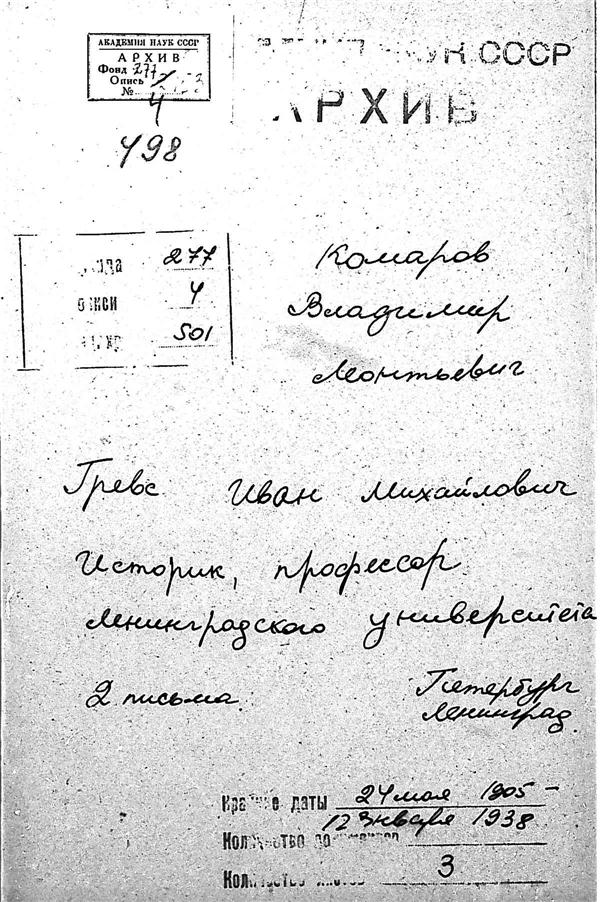 АКАДЕМИЯ НАУК СССР
АРХИВ
Фонд 277
Опись
№
4
498
НАУК СССР
АРХИВ
277
4
501
Комаров
Владимир
Леонтьевич
Гревс Иван Михайлович
Историк, профессор
Ленинградского университета
2 письма
Петербург
Ленинград
Крайние даты 24 мая 1905 –
12 января 1938
Количество
Количество листов 3